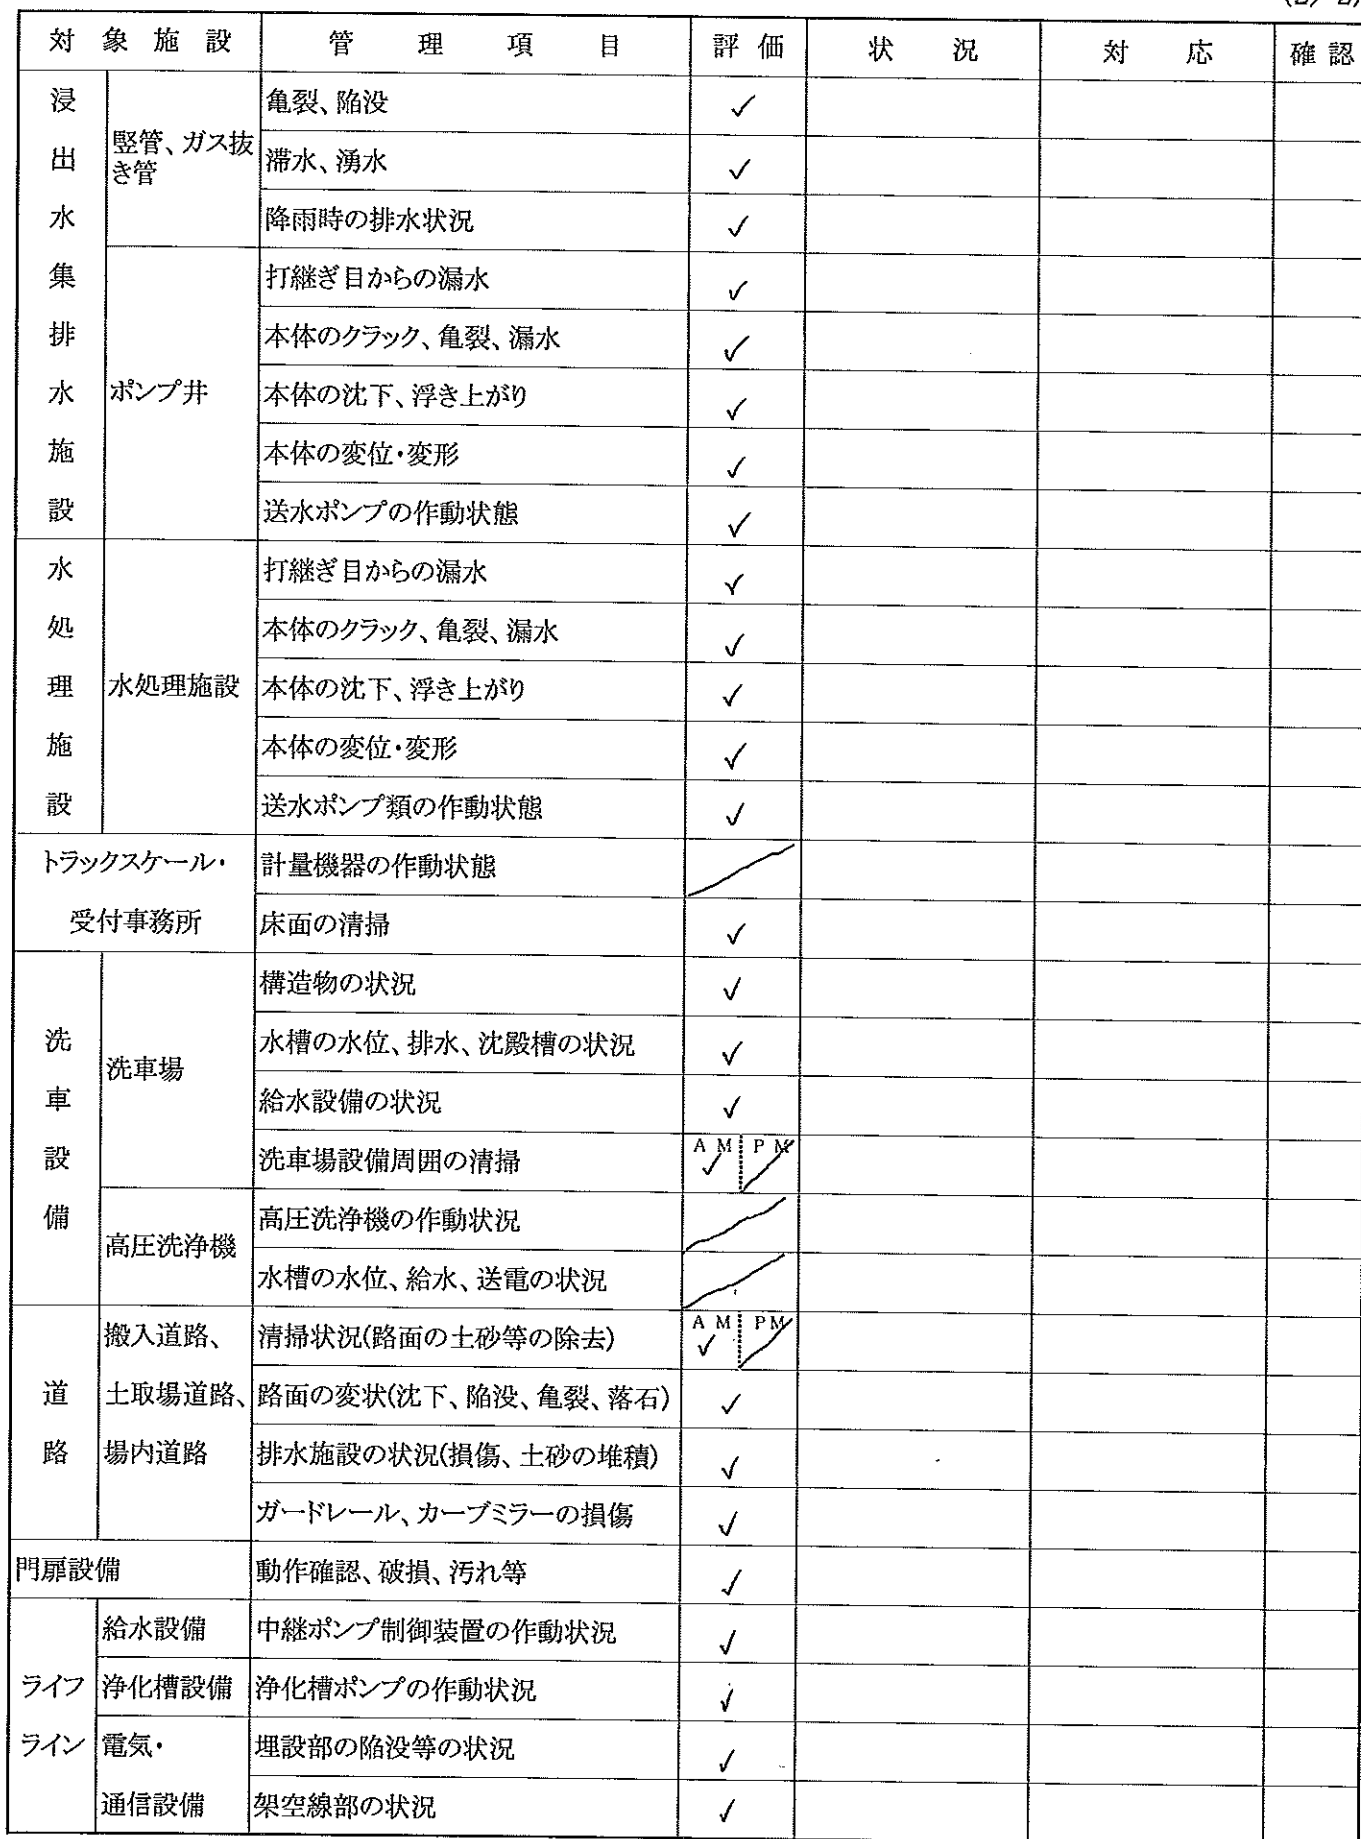 対象施設 管理項目 評価 状況 対応 確認
浸出水集排水施設 竪管、ガス抜き管 亀裂、陥没 ✓
滞水、湧水 ✓
降雨時の排水状況 ✓
ポンプ井 打継ぎ目からの漏水 ✓
本体のクラック、亀裂、漏水 ✓
本体の沈下、浮き上がり ✓
本体の変位・変形 ✓
送水ポンプの作動状態 ✓
水処理施設 水処理施設 打継ぎ目からの漏水 ✓
本体のクラック、亀裂、漏水 ✓
本体の沈下、浮き上がり ✓
本体の変位・変形 ✓
送水ポンプ類の作動状態 ✓
トラックスケール・受付事務所 計量機器の作動状態
床面の清掃 ✓
洗車設備 洗車場 構造物の状況 ✓
水槽の水位、排水、沈殿槽の状況 ✓
給水設備の状況 ✓
洗車場設備周囲の清掃 AM ✓ PM
高圧洗浄機 高圧洗浄機の作動状況
水槽の水位、給水、送電の状況
道路 搬入道路、土取場道路、場内道路 清掃状況(路面の土砂等の除去) AM ✓ PM
路面の変状(沈下、陥没、亀裂、落石) ✓
排水施設の状況(損傷、土砂の堆積) ✓
ガードレール、カーブミラーの損傷 ✓
門扉設備 動作確認、破損、汚れ等 ✓
ライフライン 給水設備 中継ポンプ制御装置の作動状況 ✓
浄化槽設備 浄化槽ポンプの作動状況 ✓
電気・通信設備 埋設部の陥没等の状況 ✓
架空線部の状況 ✓